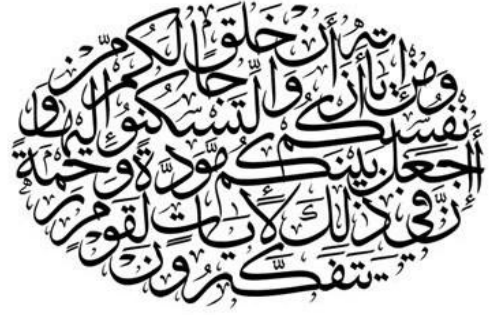 ومن آياته أن خلق لكم من
أنفسكم أزواجا لتسكنوا إليها و
جعل بينكم مودة ورحمة
إن في ذلك لآيات لقوم
يتفكرون